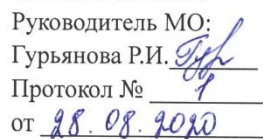 Руководитель МО:
Гурьянова Р.И.
Протокол № 1
от 28.08.2020